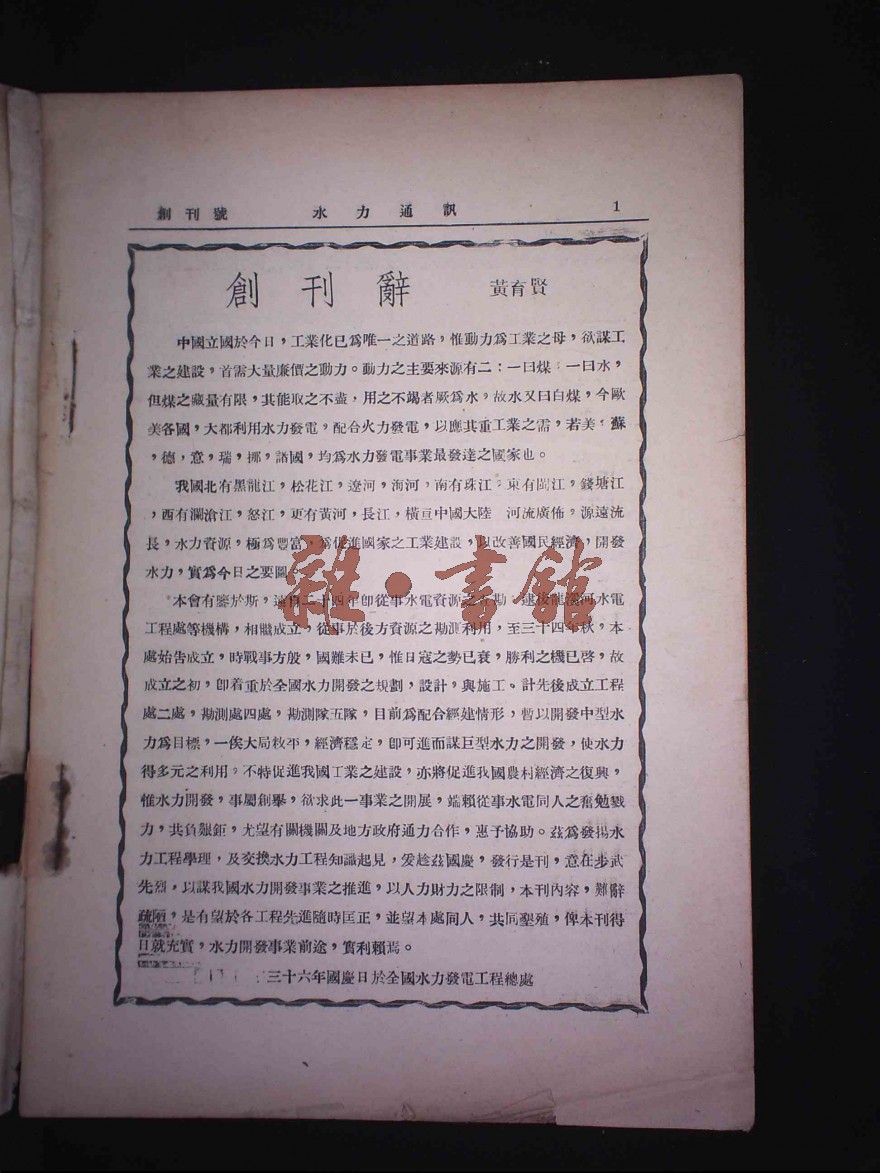 創刊號 水力通訊 1
創刊辭 黃育賢
中國立國於今日，工業化已爲唯一之道路，惟動力爲工業之母，欲謀工
業之建設，首需大量廉價之動力。動力之主要來源有二：一曰煤，一曰水，
但煤之藏量有限，其能取之不盡，用之不竭者厥爲水。故水又曰白煤，今歐
美各國，大都利用水力發電，配合火力發電，以應其重工業之需，若美，蘇
，德，意，瑞，挪，諸國，均爲水力發電事業最發達之國家也。
我國北有黑龍江，松花江，遼河，海河，南有珠江，東有閩江，錢塘江
，西有瀾滄江，怒江，更有黃河，長江，橫亘中國大陸 河流廣佈，源遠流
長，水力資源，極爲豐富，爲促進國家之工業建設，以改善國民經濟，開發
水力，實爲今日之要圖。
本會有鑒於斯，遠自二十四年卽從事水電資源之查勘 逮後龍溪河水電
工程處等機構，相繼成立，從事於後方資源之勘測利用，至三十四年秋，本
處始告成立，時戰事方殷，國難未已，惟日寇之勢已衰，勝利之機已啓，故
成立之初，卽着重於全國水力開發之規劃，設計，與施工。計先後成立工程
處二處，勘測處四處，勘測隊五隊，目前爲配合經建情形，暫以開發中型水
力爲目標，一俟大局敉平，經濟穩定，卽可進而謀巨型水力之開發，使水力
得多元之利用，不特促進我國工業之建設，亦將促進我國農村經濟之復興，
惟水力開發，事屬創舉，欲求此一事業之開展，端賴從事水電同人之奮勉戮
力，共負艱鉅，尤望有關機關及地方政府通力合作，惠予協助。茲爲發揚水
力工程學理，及交換水力工程知識起見，爰趁茲國慶，發行是刊，意在步武
先烈，以謀我國水力開發事業之推進，以人力財力之限制，本刊內容，難辭
疏陋，是有望於各工程先進隨時匡正，並望本處同人，共同墾殖，俾本刊得
日就充實，水力開發事業前途，實利賴焉。
三十六年國慶日於全國水力發電工程總處
雜·書館